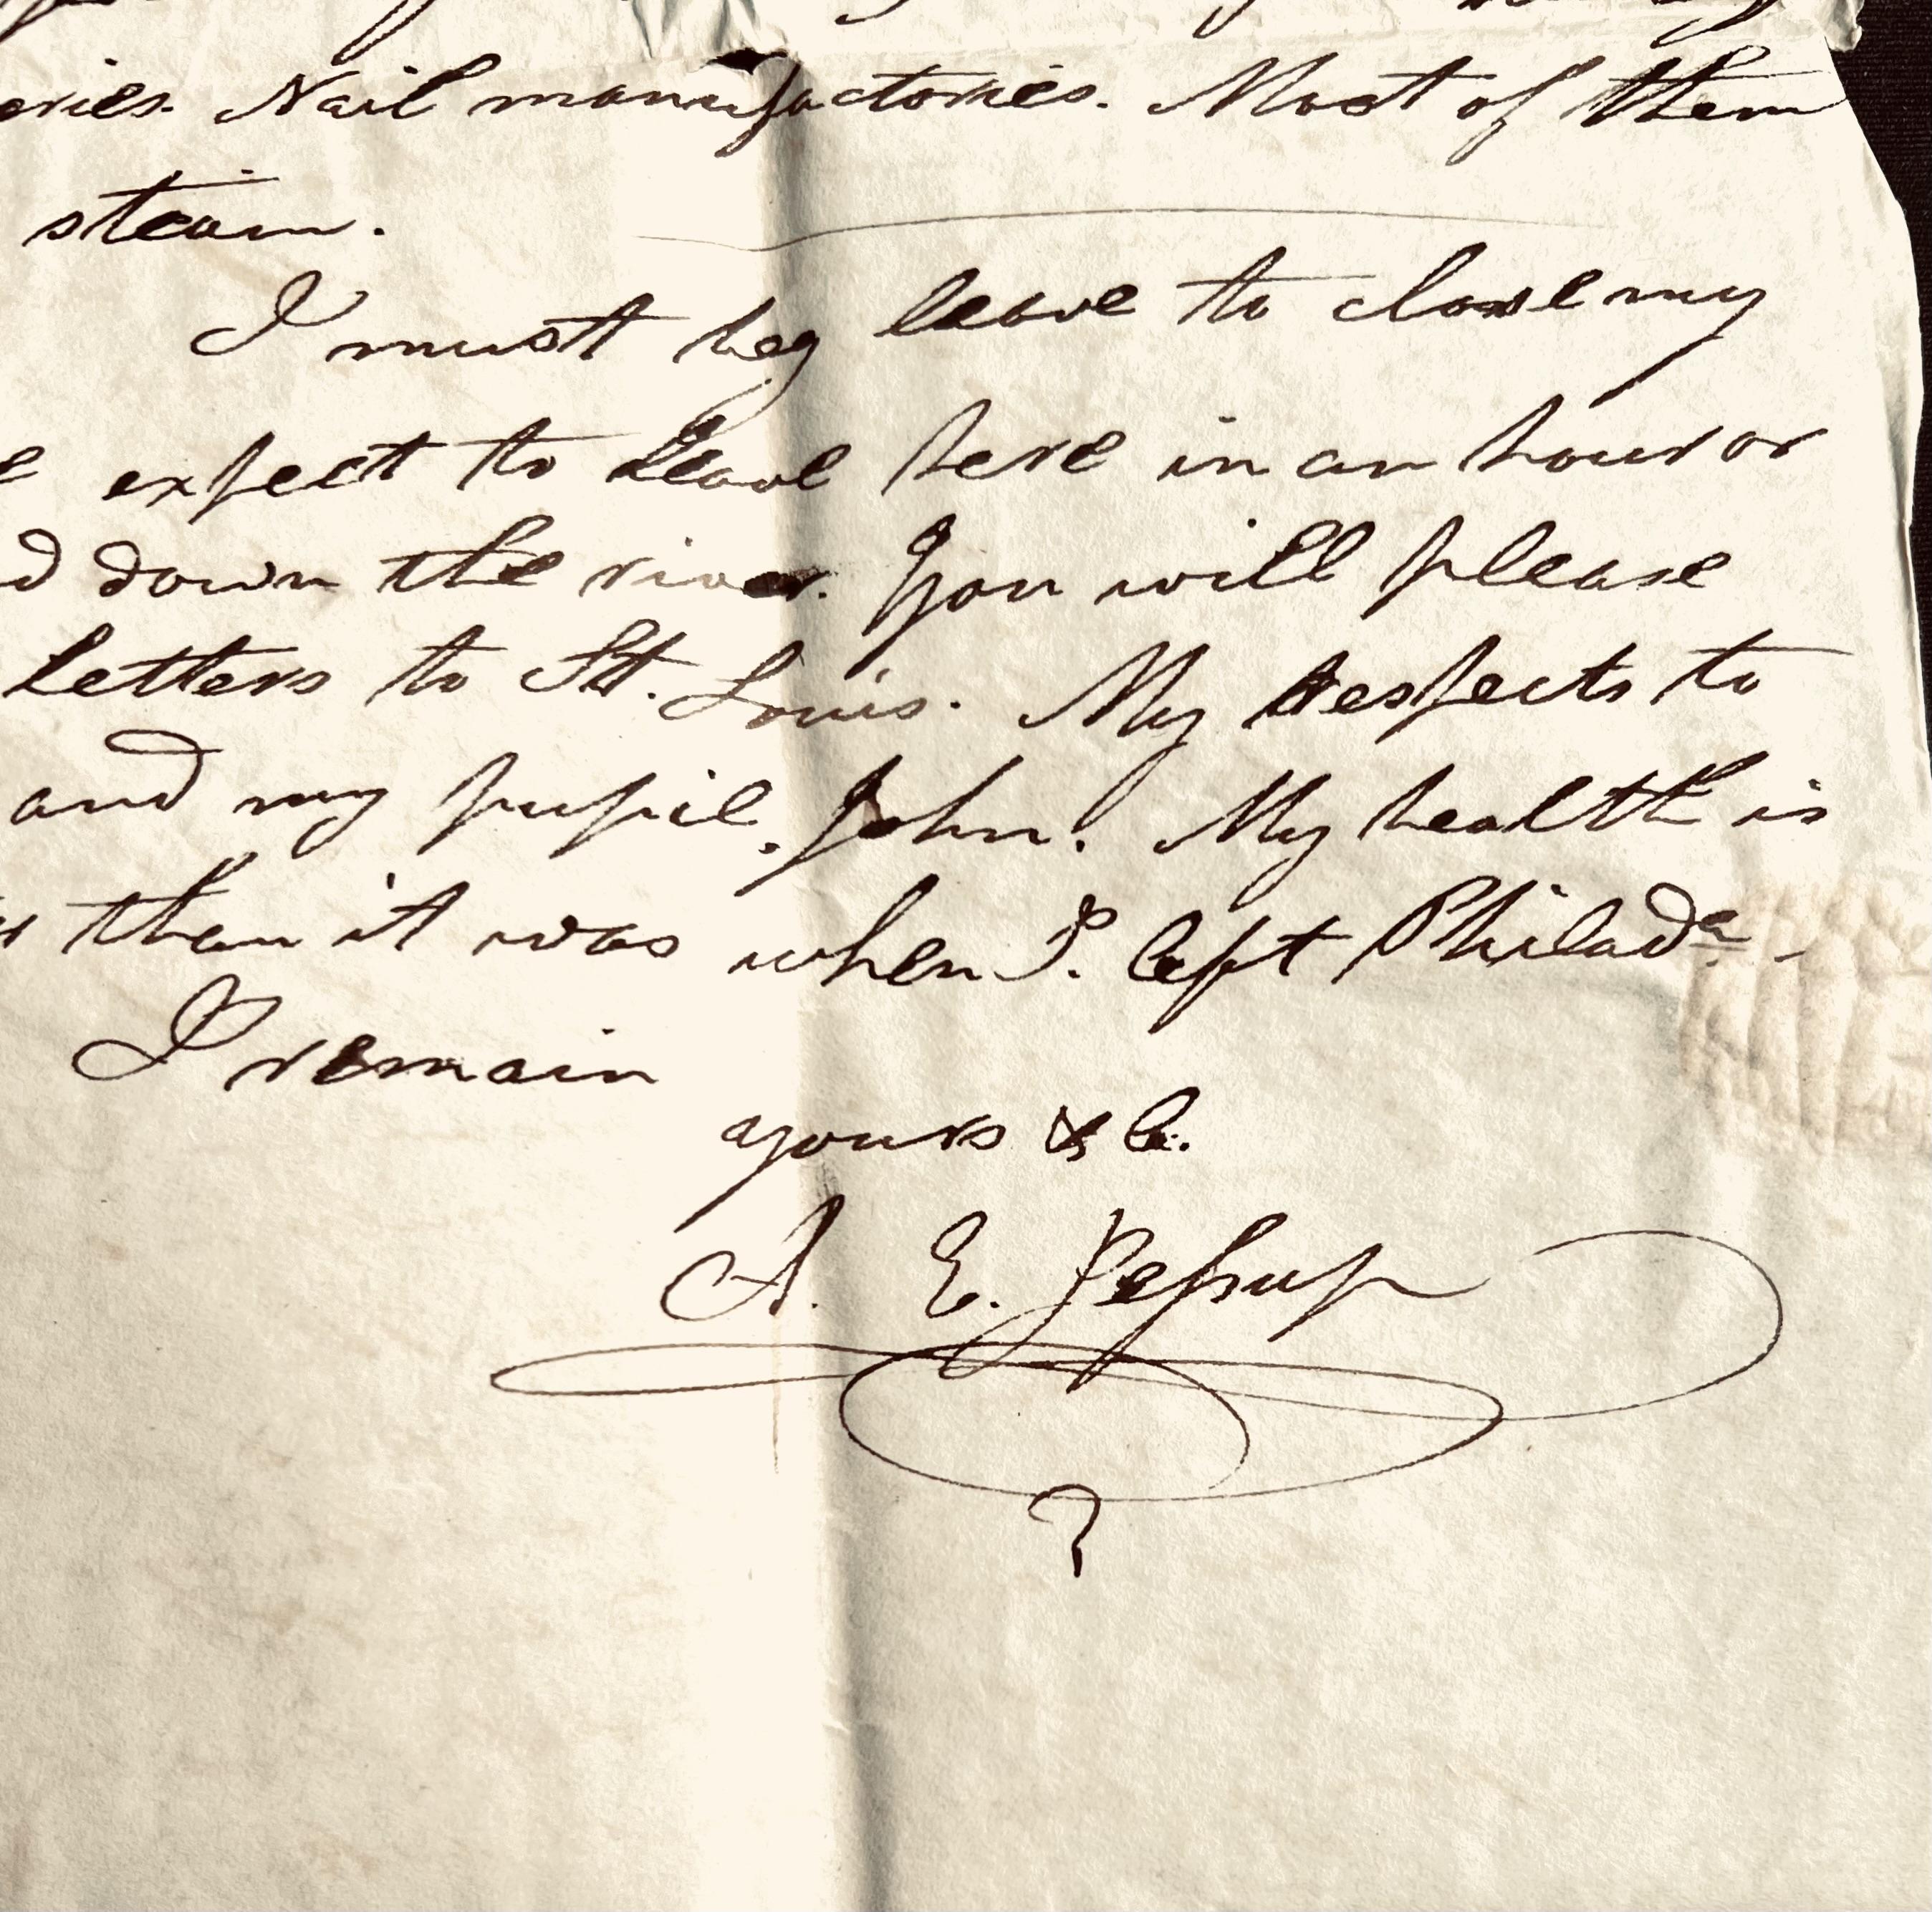 eries. Nail manufactories. Most of them
steam.
I must beg leave to close my
expect to leave here in an hour or
d down the river. You will please
letters to St. Louis. My respects to
and my pupil. John. My health is
than it was when I. left Philada.
I remain
yours &c.
A. E. Jessup